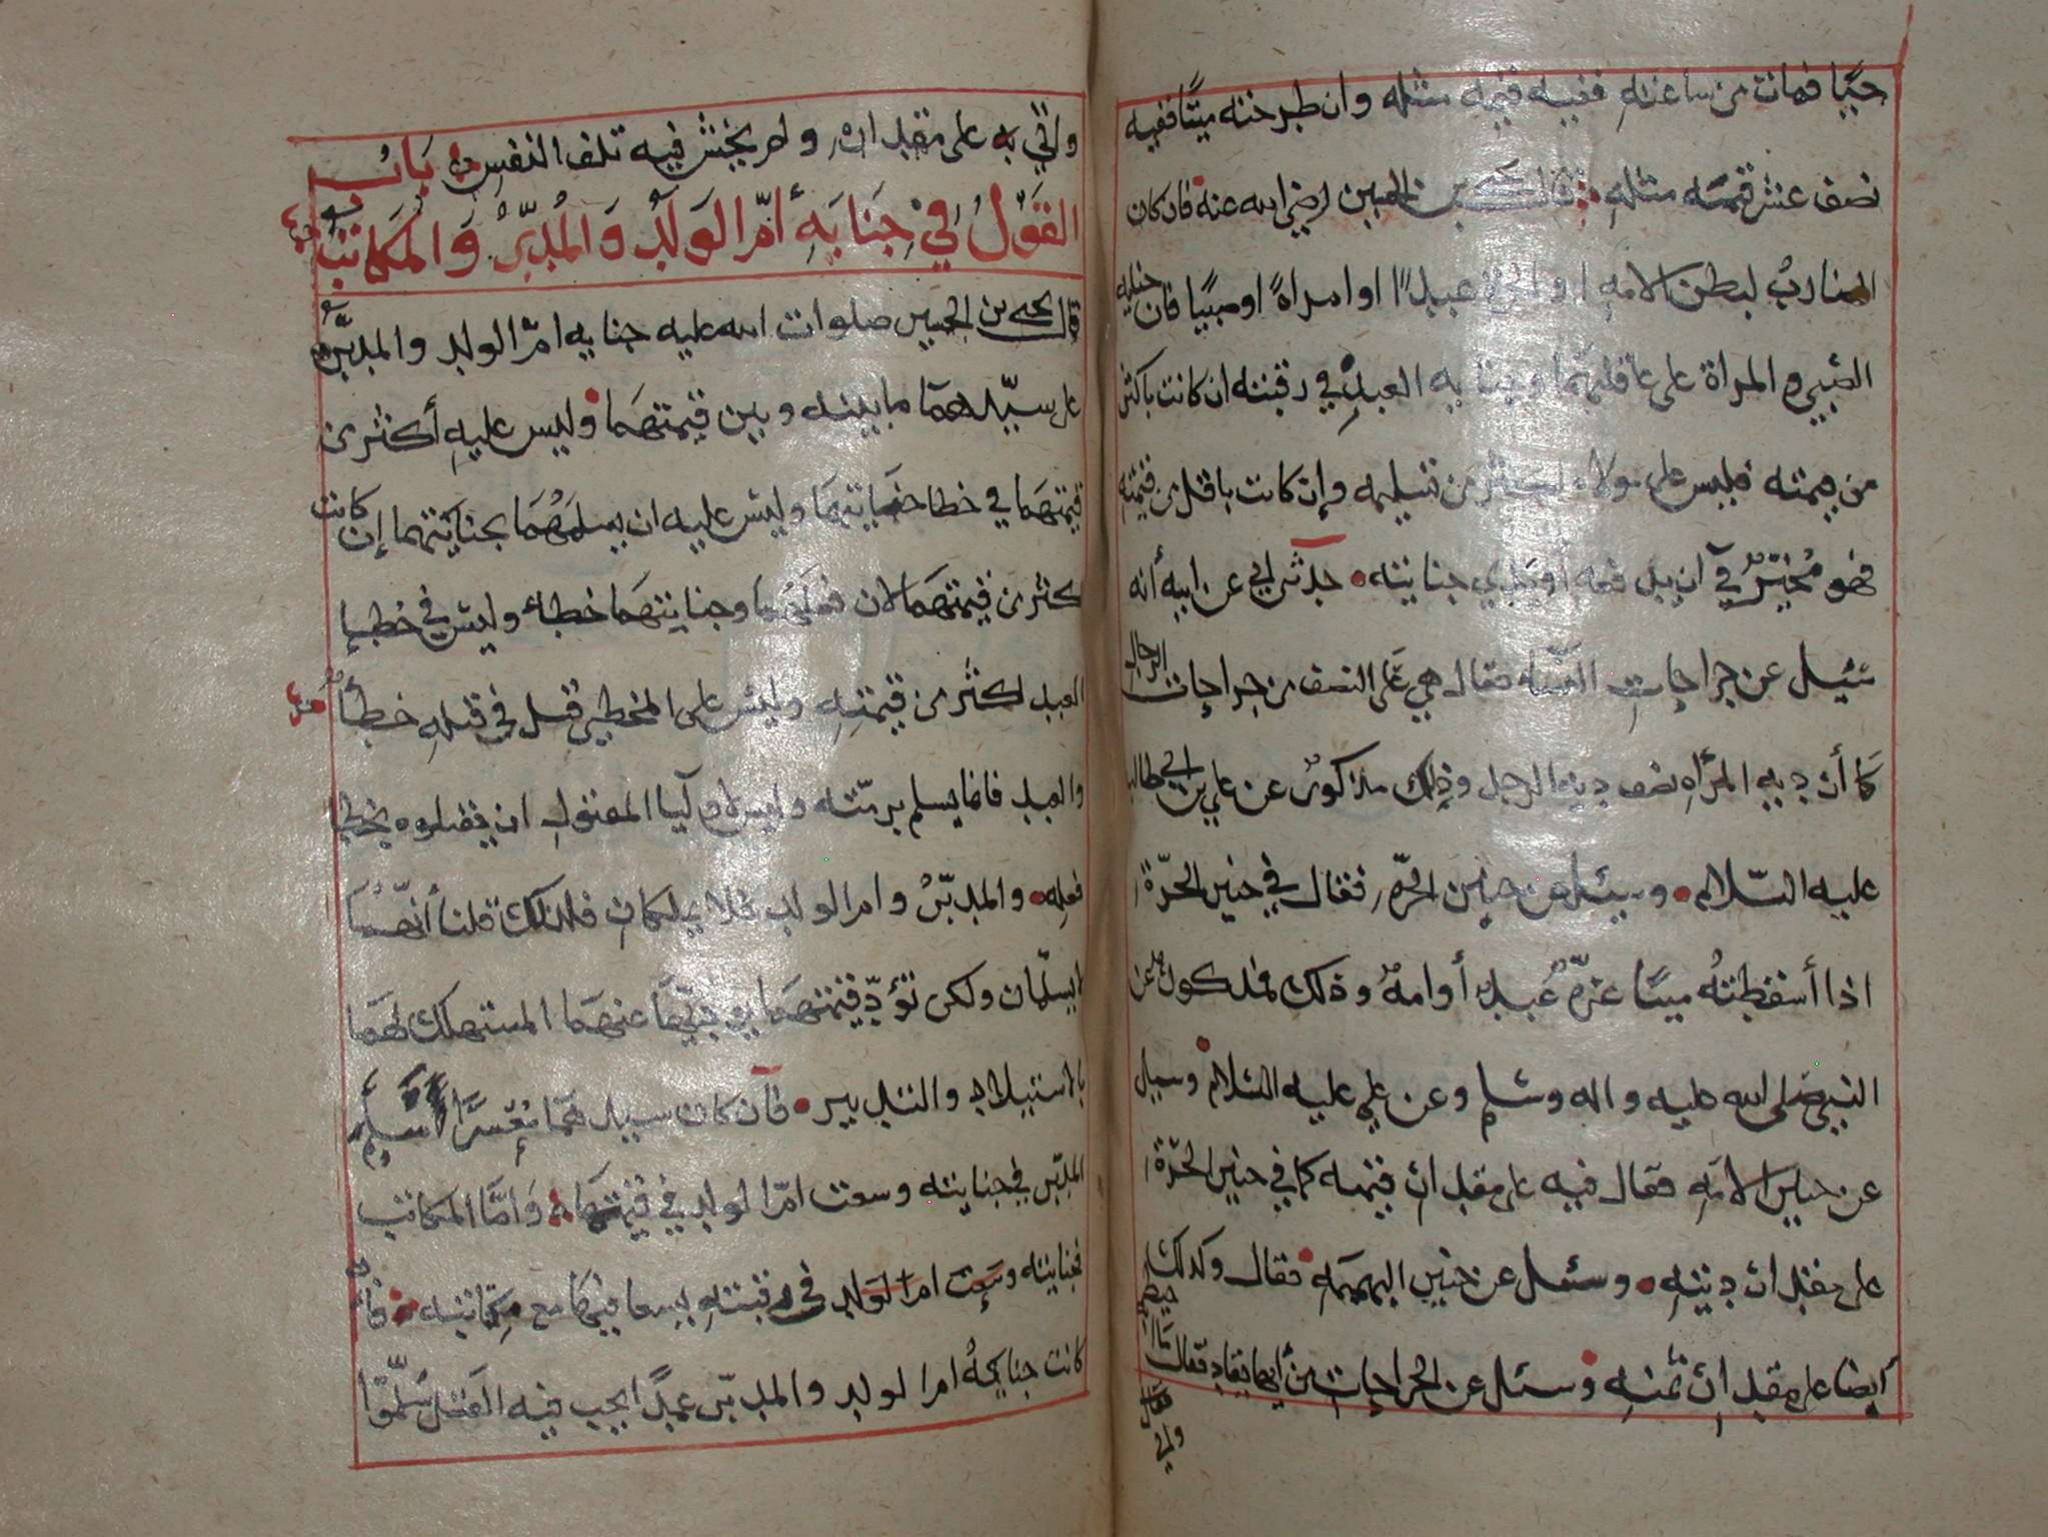 حيًا فمات من ساعته ففيه قيمة مثله وان طرحته ميتًا ففيه
نصف عشر قيمة مثله قال يحيى بن الحسين رضي الله عنه فان كان
الضارب لبطن الامة او الحرة عبدًا او امراةً او صبيًا فان جناية
الصبي والمراة على عاقلتهما وجناية العبد في رقبته ان كانت باكثر
من قيمته فليس على مولاه اكثر من تسليمه وإن كانت باقل من قيمته
فهو مُخيّرٌ في أن يدفعه أو يفدي جنايته حدثني ابي عن ابيه أنه
سُئِل عن جراحات النساء فقال هي على النصف من جراحات الرجال
كما أن دية المرأة نصف دية الرجل وذلك مذكورٌ عن علي بن ابي طالب
عليه السّلام وسئل عن جنين الحرة فقال في جنين الحرّة
اذا أسقطتهُ ميتًا غرّةٌ عُبدٌ أو امةٌ وذلك فمذكور عن
النبي صلى الله عليه واله وسلم وعن علي عليه السلام وسئل
عن جنين الامة فقال فيه على مقدار قيمته كما في جنين الحرّة
على مقدار ديته وسئل عن جنين البهيمة فقال وكذلك
أيضا على مقدار ثمنه وسئل عن الجراحات من أيها يقاد فقال
واتي به على مقداره ولم يخش فيه تلف النفس بَابُ
القَوْلُ فِي جِنَايَةِ أُمِّ الوَلَدِ وَالمُدَبَّرِ وَالمكَاتَبِ
قال يحيى بن الحسين صلوات الله عليه جناية امّ الولد والمدبّر
على سيّدهما ما بينه وبين قيمتهما وليس عليهِ أكثر من
قيمتهما في خطا جنايتهما وليس عليه ان يسلمَهُما بجنايتهما إن كانت
اكثر من قيمتهما لان فعلهما وجنايتهما خطاء وليس في خطإِ
العبد اكثر من قيمته وليس على المخطي قتل في قتله خطأً
والعبد فانما يسلم برمّته وليس لاوليا المقتول ان يقتلوه بخطا
فعله والمدبّر وام الولد فلا يملكان فلذلك قلنا أنّهمَا
لا يسلّمان ولكن تؤدّى قيمتهما يوديها عنهما المستهلك لهما
بالاستيلاد والتدبير فان كان سيدهما مُعْسرًا أُسلم
المدبّر في جنايته وسعت امّ الولد في قيمتها وَامّا المكاتب
فجنايته وسعت ام الولد في رقبته يسعا فيها مع مكاتبته فان
كانت جناية ام الولد والمدبّر عمدًا يجب فيه القتل سُلّموا